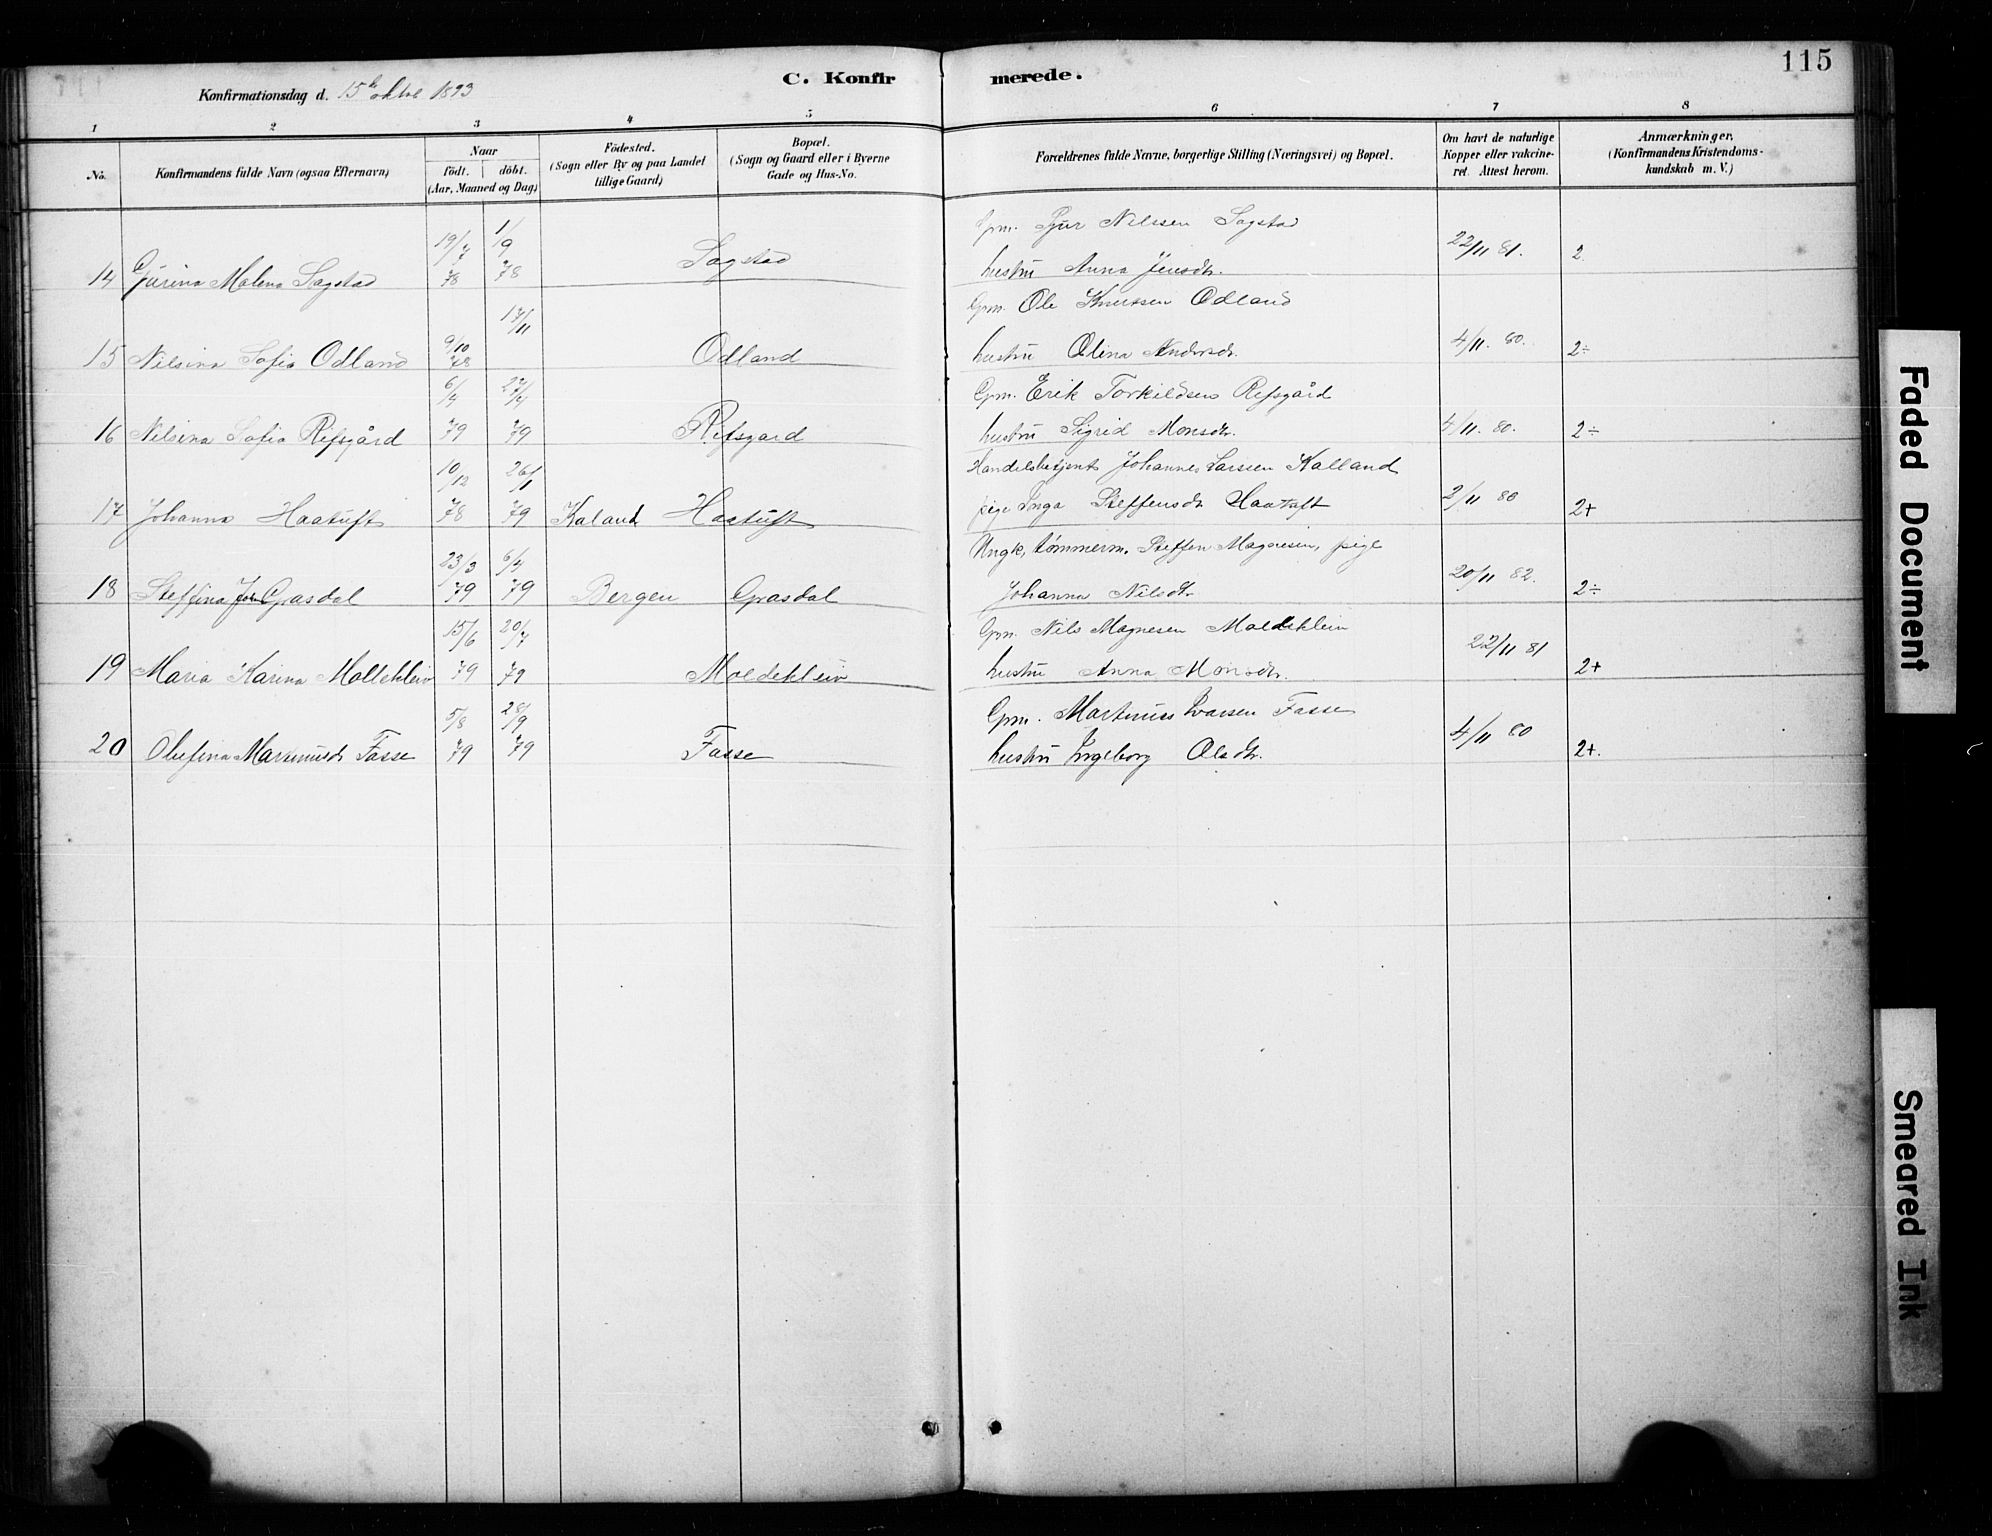 115
C. Konfirmerede.
Konfirmationsdag d. 15de oktbr 1893
1 2 3 4 5 6 7 8
No. Konfirmandens fulde Navn (ogsaa Efternavn) Naar födt. döbt. (Aar, Maaned og Dag) Födested. (Sogn eller By og paa Landet tillige Gaard) Bopæl. (Sogn og Gaard eller i Byerne Gade og Hus-No. Forældrenes fulde Navne, borgerlige Stilling (Næringsvei) og Bopæl. Om havt de naturlige Kopper eller vakcineret. Attest herom. Anmærkninger. (Konfirmandens Kristendomskundskab m. V.)
14 Gjurina Malena Sagstad 19/7 78 1/9 78 Sagstad Gpm. Gjur Nilssen Sagstad
hustru Anna Jensdtr. 22/11 81. 2
15 Nilsina Sofia Odland 9/10 78 17/11 Odland Gpm. Ole Knutsen Odland
hustru Olina Andersdtr. 4/11. 80. 2÷
16 Nilsina Sofia Refsgård 6/4 79 27/4 79 Refsgard Gpm. Erik Torkildsen Refsgård
hustru Sigrid Monsdtr. 4/11. 80. 2÷
17 Johanna Haatuft 10/12 78 26/1 79 Kaland Haatuft Handelsbetjent Johannes Larsen Kalland
pige Inga Steffensdtr Haatuft 2/11 80 2+
18 Steffina Joh Grasdal 23/3 79 6/4 79 Bergen Grasdal Ungk, tømmerm. Steffen Magnesen, pige
Johanna Nilsdtr 20/11 82. 2÷
19 Maria Karina Moltekleiv 15/6 79 20/7 79 Moldekleiv Gpm. Nils Magnesen Moldekleiv
hustru Anna Monsdtr. 22/11 81 2+
20 Olufina Martinusdtr Fasse 5/8 79 28/9 79 Fasse Gpm. Martinus Ivarsen Fasse
hustru Ingeborg Olsdtr. 4/11 80 2+.
Faded Document
Smeared Ink